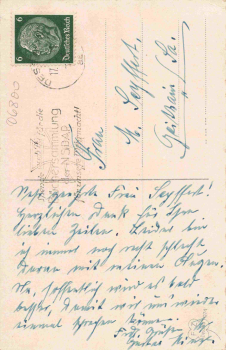 6
Deutsches Reich
6
06800
NSDAP
Frau
M. Seyffert,
Geithain/Sa.
Sehr geehrte Frau Seyffert!
Herzlichen Dank für Ihre
lieben Zeilen. Leider bin
ich immer noch recht schlecht
daran mit meinen Augen.
Na, hoffentlich wird es bald
besser, damit wir uns wieder
einmal sprechen können.
Frdl. Grüße